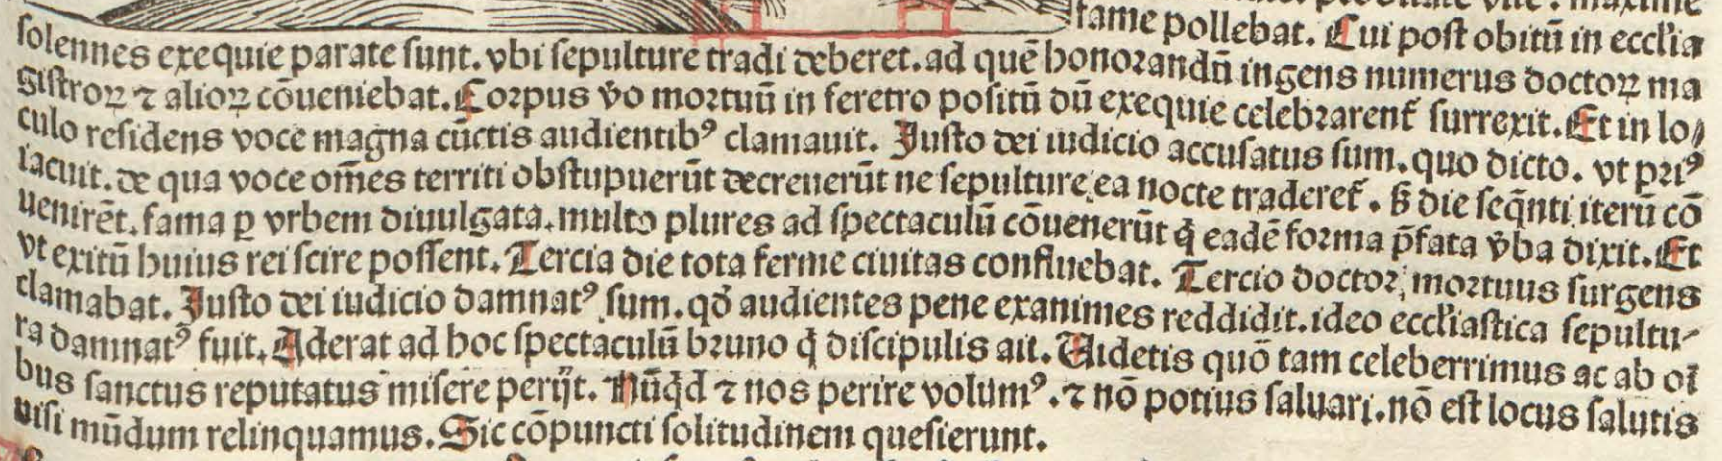 fame pollebat. Cui post obitū in eccl'ia
solennes exequie parate sunt. vbi sepulture tradi deberet. ad quē honorandū ingens numerus doctoꝝ ma
gistroꝝ ⁊ alioꝝ cōueniebat. Corpus v̄o mortuū in feretro positū dū exequie celebrarent᷑ surrexit. Et in lo⸗
culo residens voce magna cūctis audientibꝰ clamauit. Justo dei iudicio accusatus sum. quo dicto. vt priꝰ
iacuit. de qua voce om̄es territi obstupuerūt decreuerūt ne sepulture ea nocte traderet᷑. ß die seq̄nti iterū cō
uenirēt. fama ꝑ vrbem diuulgata. multo plures ad spectaculū cōuenerūt q̇ eadē forma p̄fata v̄ba dixit. Et
vt exitū huius rei scire possent. Tercia die tota ferme ciuitas confluebat. Tercio doctor mortuus surgens
clamabat. Justo dei iudicio damnatꝰ sum. qd̓ audientes pene exanimes reddidit. ideo eccl'iastica sepultu⸗
ra damnatꝰ fuit. Aderat ad hoc spectaculū bruno q̇ discipulis ait. Uidetis quō tam celeberrimus ac ab oī
bus sanctus reputatus misere perijt. Nūq̇d ⁊ nos perire volumꝰ. ⁊ nō potius saluari. nō est locus salutis
nisi mūdum relinquamus. Sic cōpuncti solitudinem quesierunt.